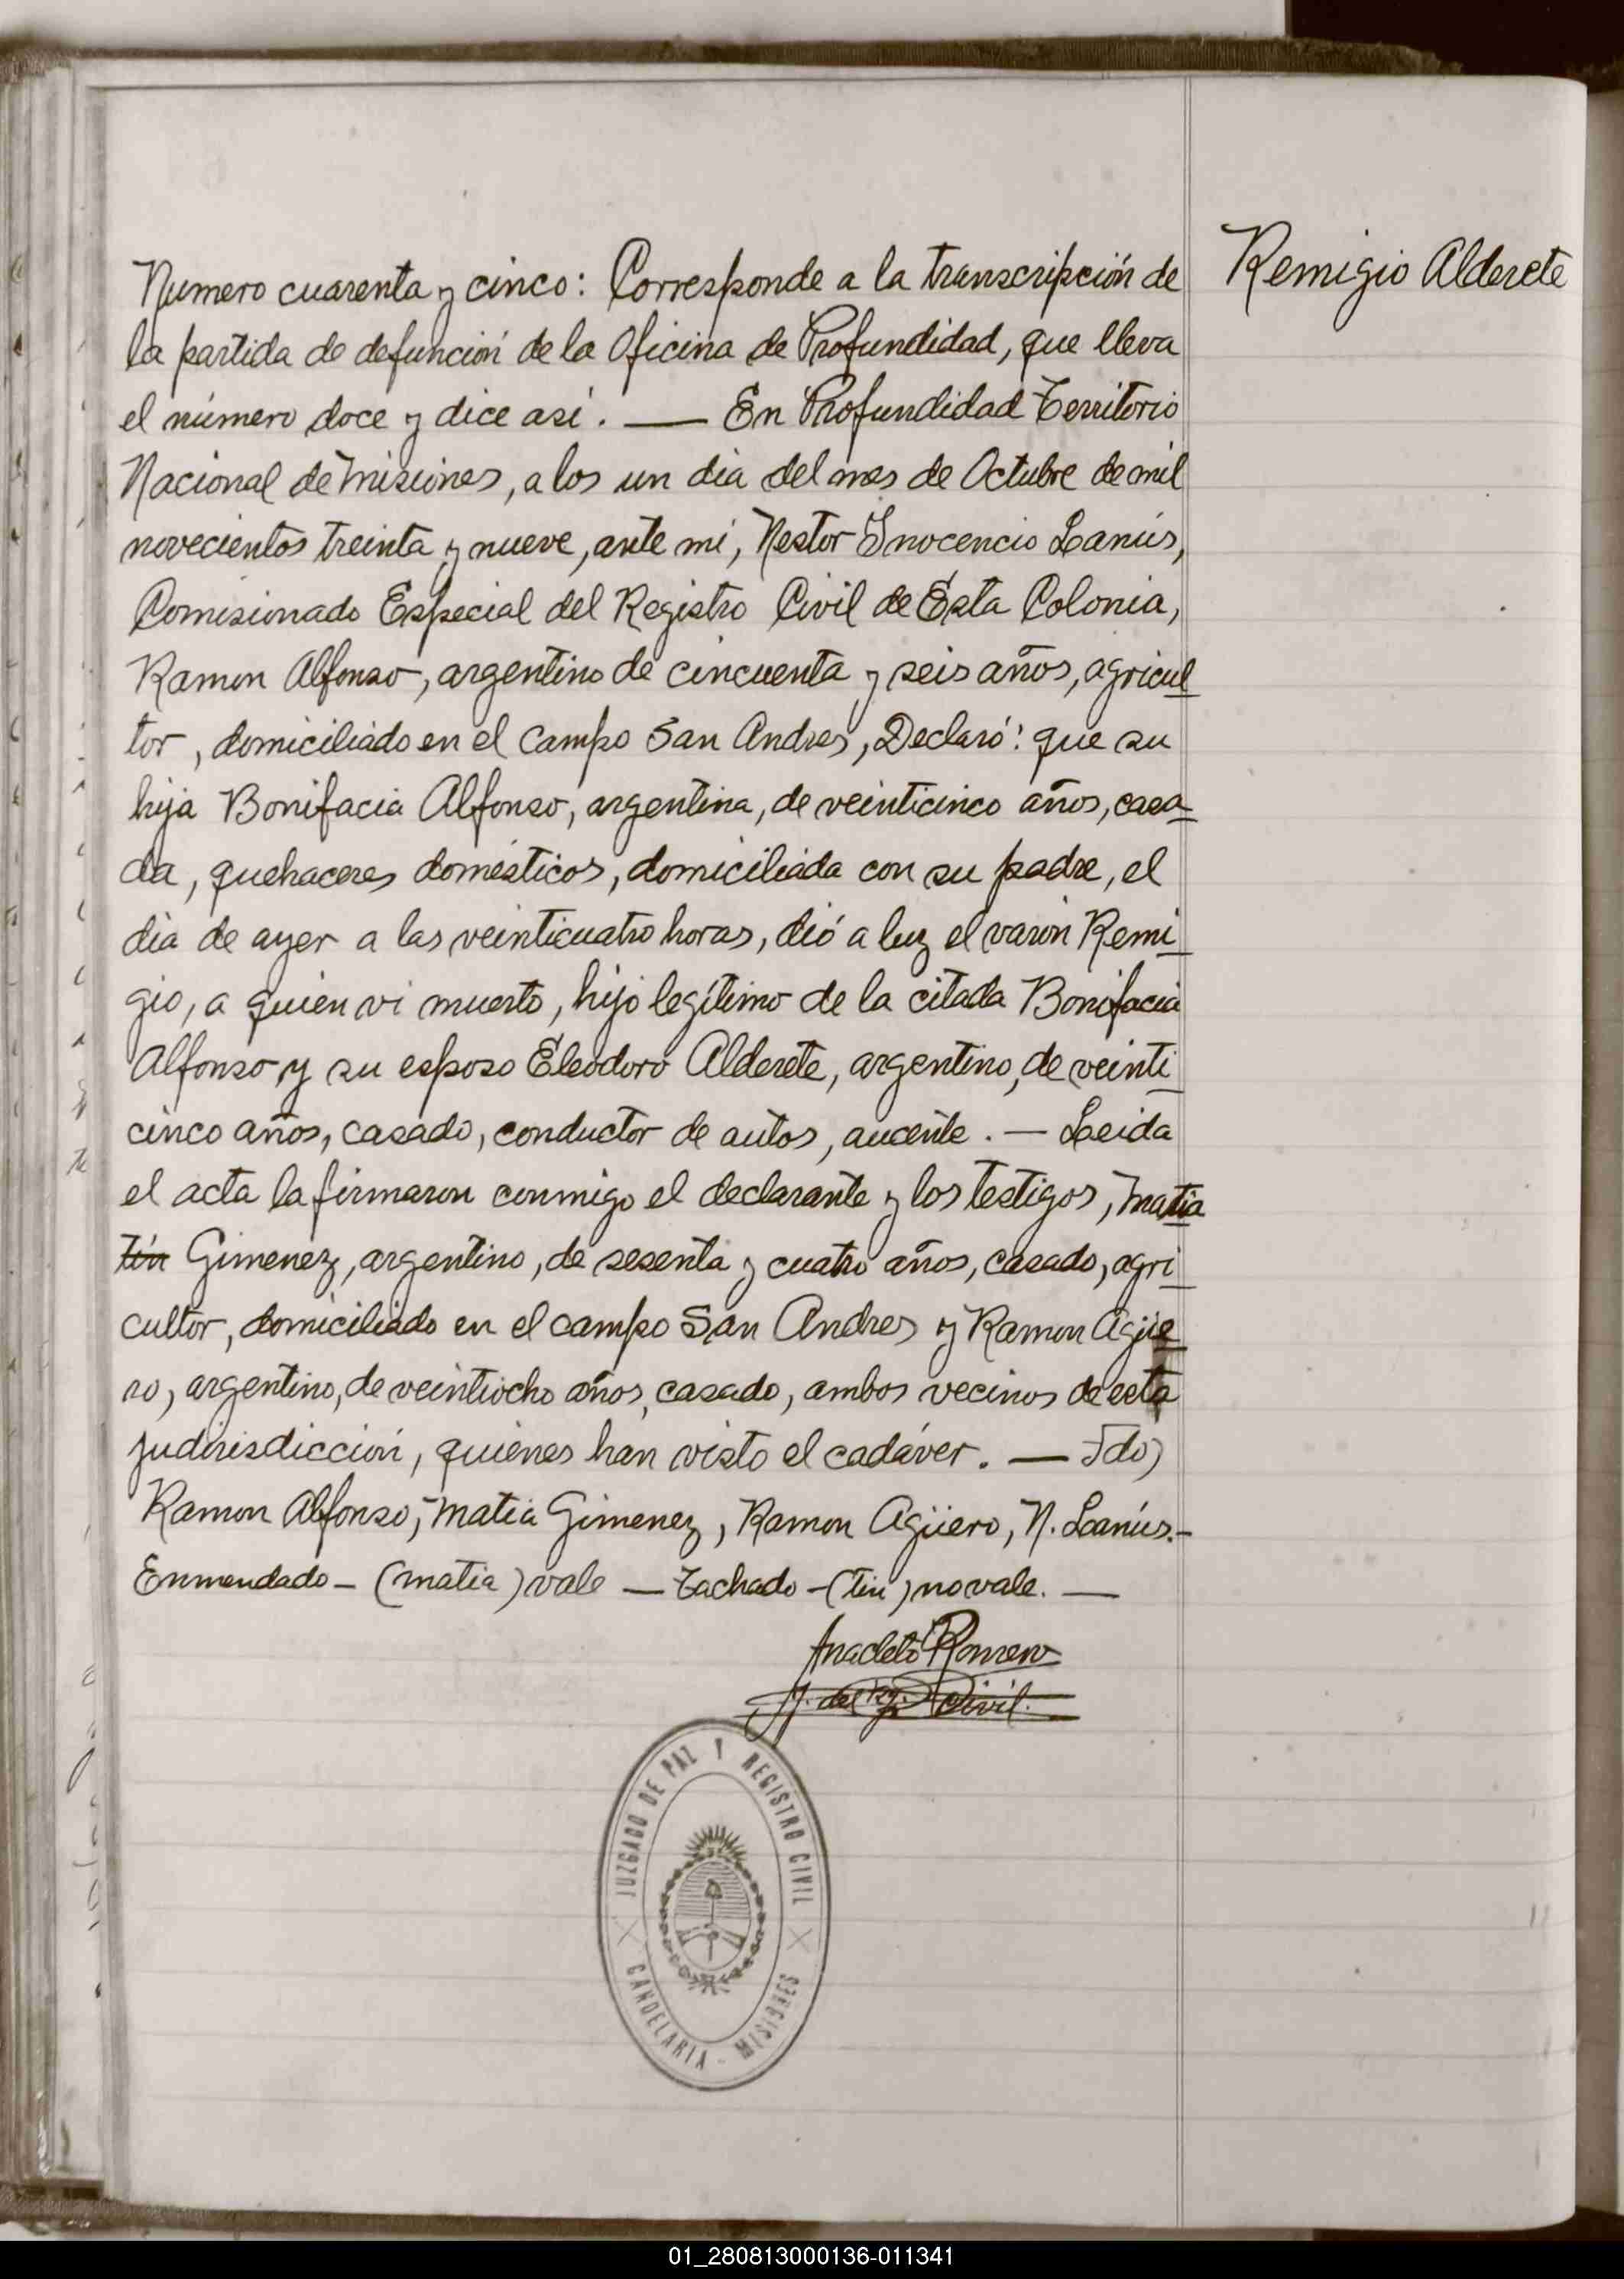 Remigio Alderete
Numero cuarenta y cinco: Corresponde a la transcripción de
la partida de defunción de la Oficina de Profundidad, que lleva
el número doce y dice asi. — En Profundidad Territorio
Nacional de Misiones, a los un dia del mes de Octubre de mil
novecientos treinta y nueve, ante mi, Nestor Inocencio Lanús,
Comisionado Especial del Registro Civil de Esta Colonia,
Ramon Alfonso, argentino de cincuenta y seis años, agricul
tor, domiciliado en el campo San Andres, Declaró: que su
hija Bonifacia Alfonso, argentina, de veinticinco años, casa
da, quehaceres domésticos, domiciliada con su padre, el
dia de ayer a las veinticuatro horas, dió a luz el varón Remi
gio, a quien vi muerto, hijo legítimo de la citada Bonifacia
Alfonso y su esposo Eleodoro Alderete, argentino, de veinti
cinco años, casado, conductor de autos, aucente. — Leida
el acta la firmaron conmigo el declarante y los testigos, Matia
tín Gimenez, argentino, de sesenta y cuatro años, casado, agri
cultor, domiciliado en el campo San Andres y Ramon Agüe
ro, argentino, de veintiocho años, casado, ambos vecinos de esta
judirisdicción, quienes han visto el cadáver. — Fdo)
Ramon Alfonso, Matia Gimenez, Ramon Agüero, N. Lanús.-
Enmendado - (matia) vale — Tachado - (tin) no vale. —
Anacleto Romero
J. del Rg. Civil.
JUZGADO DE PAZ Y REGISTRO CIVIL
CANDELARIA - MISIONES
01_280813000136-011341